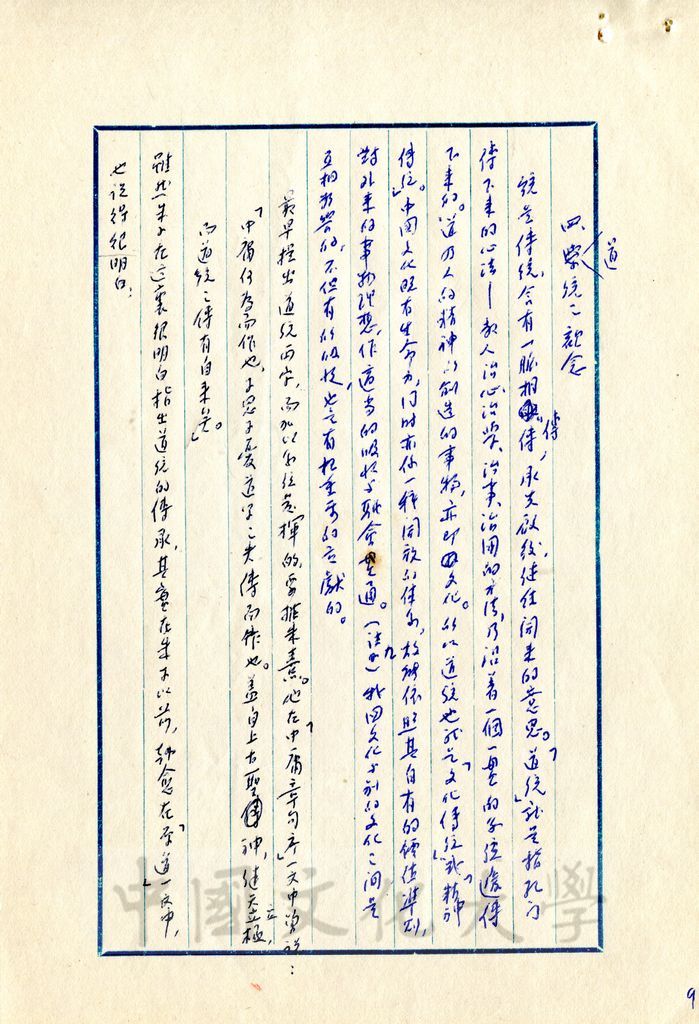 四、道統之觀念
統是傳統,含有一脈相傳,承先啟後,繼往開來的意思。「道統」就是指孔門
傳下來的心法—教人治心治學、治事、治國的方法,乃沿著一個一貫的系統遞傳
下來的。道乃人的精神所創造的事物,亦即文化。所以道統也就是「文化傳統」或「精神
傳統」。中國文化既有生命力,同時亦係一種開放的體系,故能依照其自有的價值準則,
對外來的事物理想,作適當的吸收與融會貫通。(註九)我國文化與別的文化之間是
互相影響的,不但有所吸收,也是有極重要的貢獻的。
最早提出道統兩字,而加以系統發揮的,要推朱熹。他在「中庸章句序」一文中曾說:
「中庸何為而作也,子思子憂道學之失傳而作也。蓋自上古聖神,繼天立極,
而道統之傳有自來矣。」
雖然朱子在這裏很明白指出道統的傳承,其實在朱子以前,韓愈在「原道」一文中,
也說得很明白:
中國文化大學
9